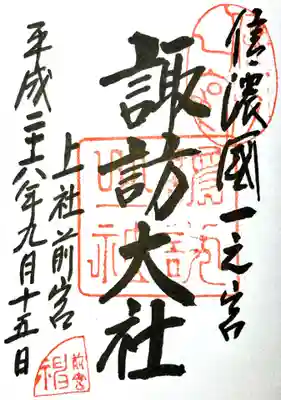 信濃國一之宮
諏訪大社
上社前宮
平成二十八年九月十五日
前宮